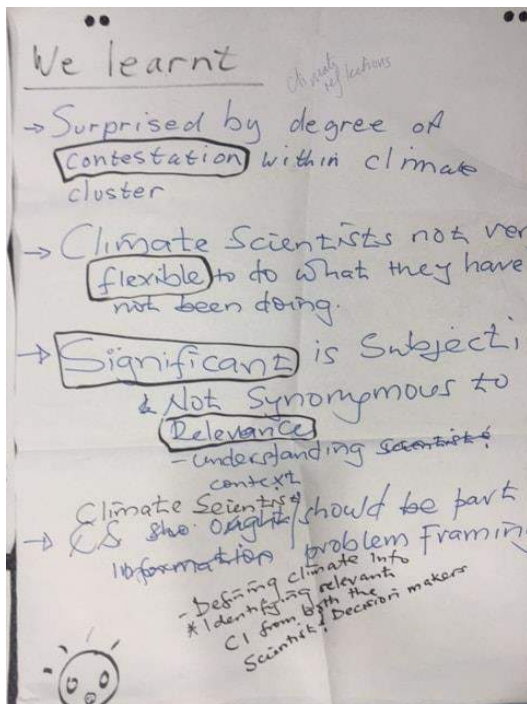 We learnt
climate
reflections
→ Surprised by degree of
contestation within climate
cluster
→ Climate Scientists not ver
flexible to do what they have
not been doing.
→ Significant is Subjecti
& Not Synonymous to
Relevance
- understanding scientist
context
Climate Scientist
→ CS sho ought/should be part
information problem Framin
- Defining climate info
* Identifying relevant
CI from both the
Scientist & Decision makers